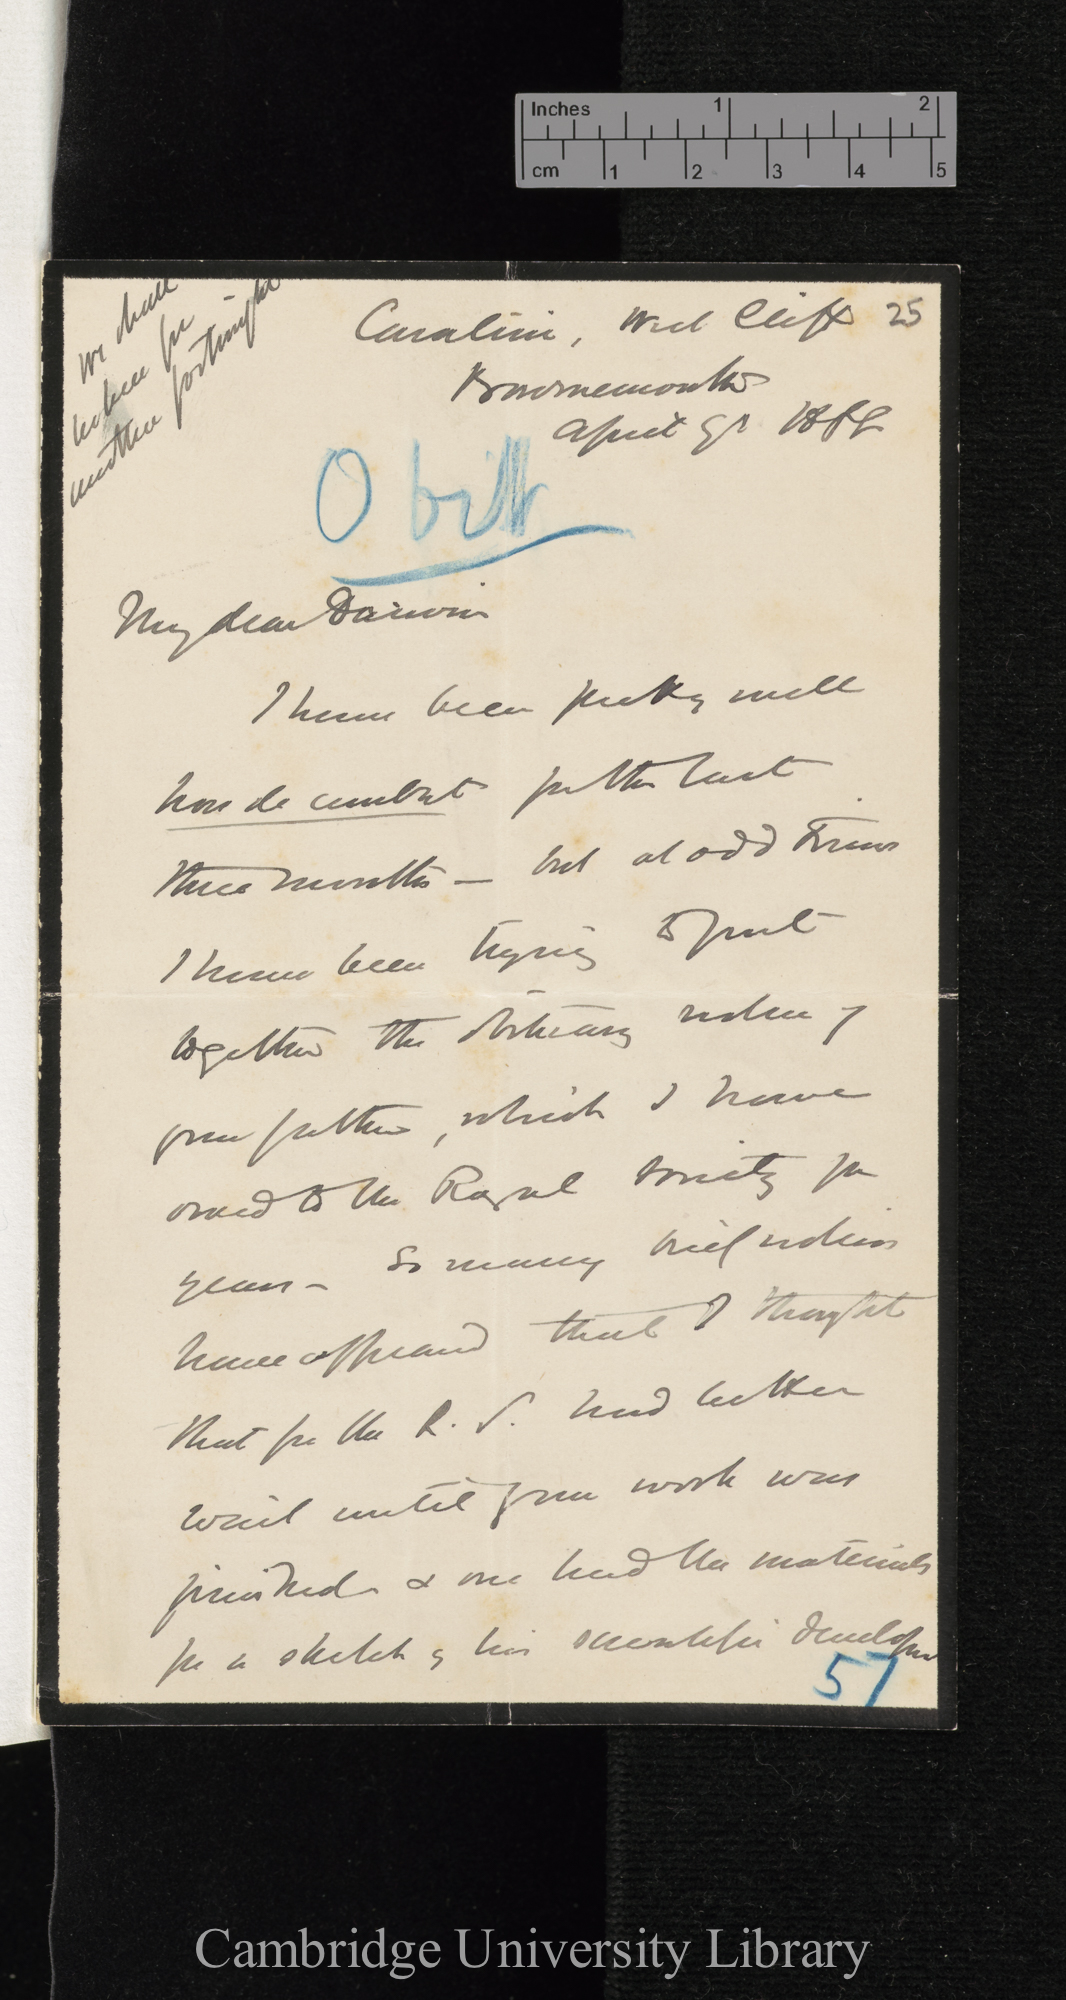 Inches 1 2
cm 1 2 3 4 5
We shall
be here for
another fortnight
Casalini, West Cliff 25
Bournemouth
April 9th 1888
Obit
My dear Darwin
I have been pretty well
hors de combat for the last
three months — but at odd times
I have been trying to put
together the obituary notice of
your father, which I have
owed to the Royal Society for
years – So many brief notices
have appeared that I thought
that for the R. S. had better
wait until your work was
finished & one had the materials
for a sketch of his scientific develop
57
Cambridge University Library